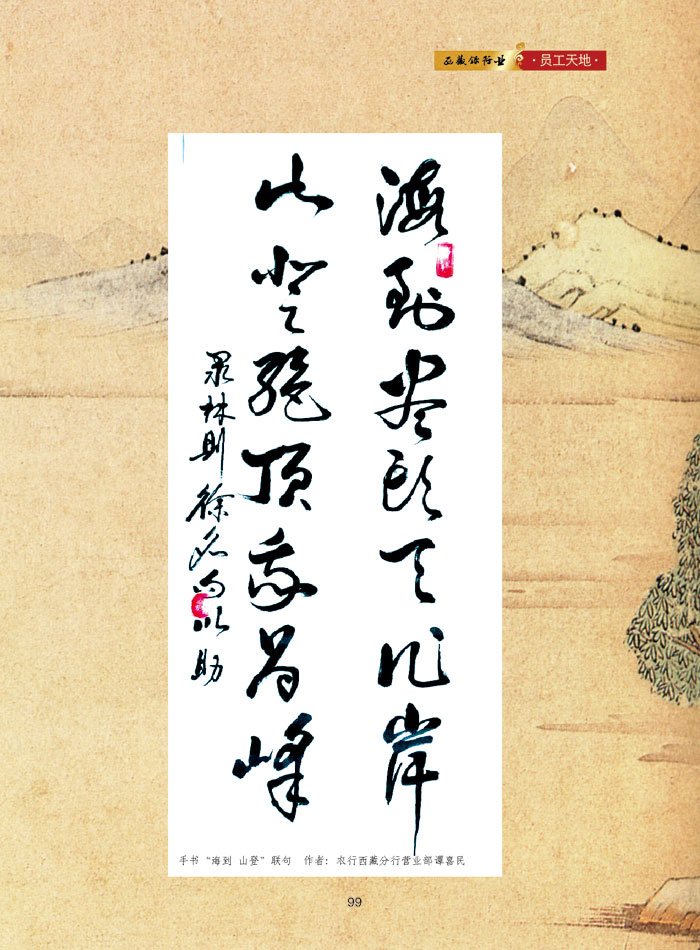 西藏银行业 ·员工天地·
海到尽头天作岸
山登绝顶我为峰
录林则徐名句以助
手书“海到 山登”联句 作者：农行西藏分行营业部谭喜民
99